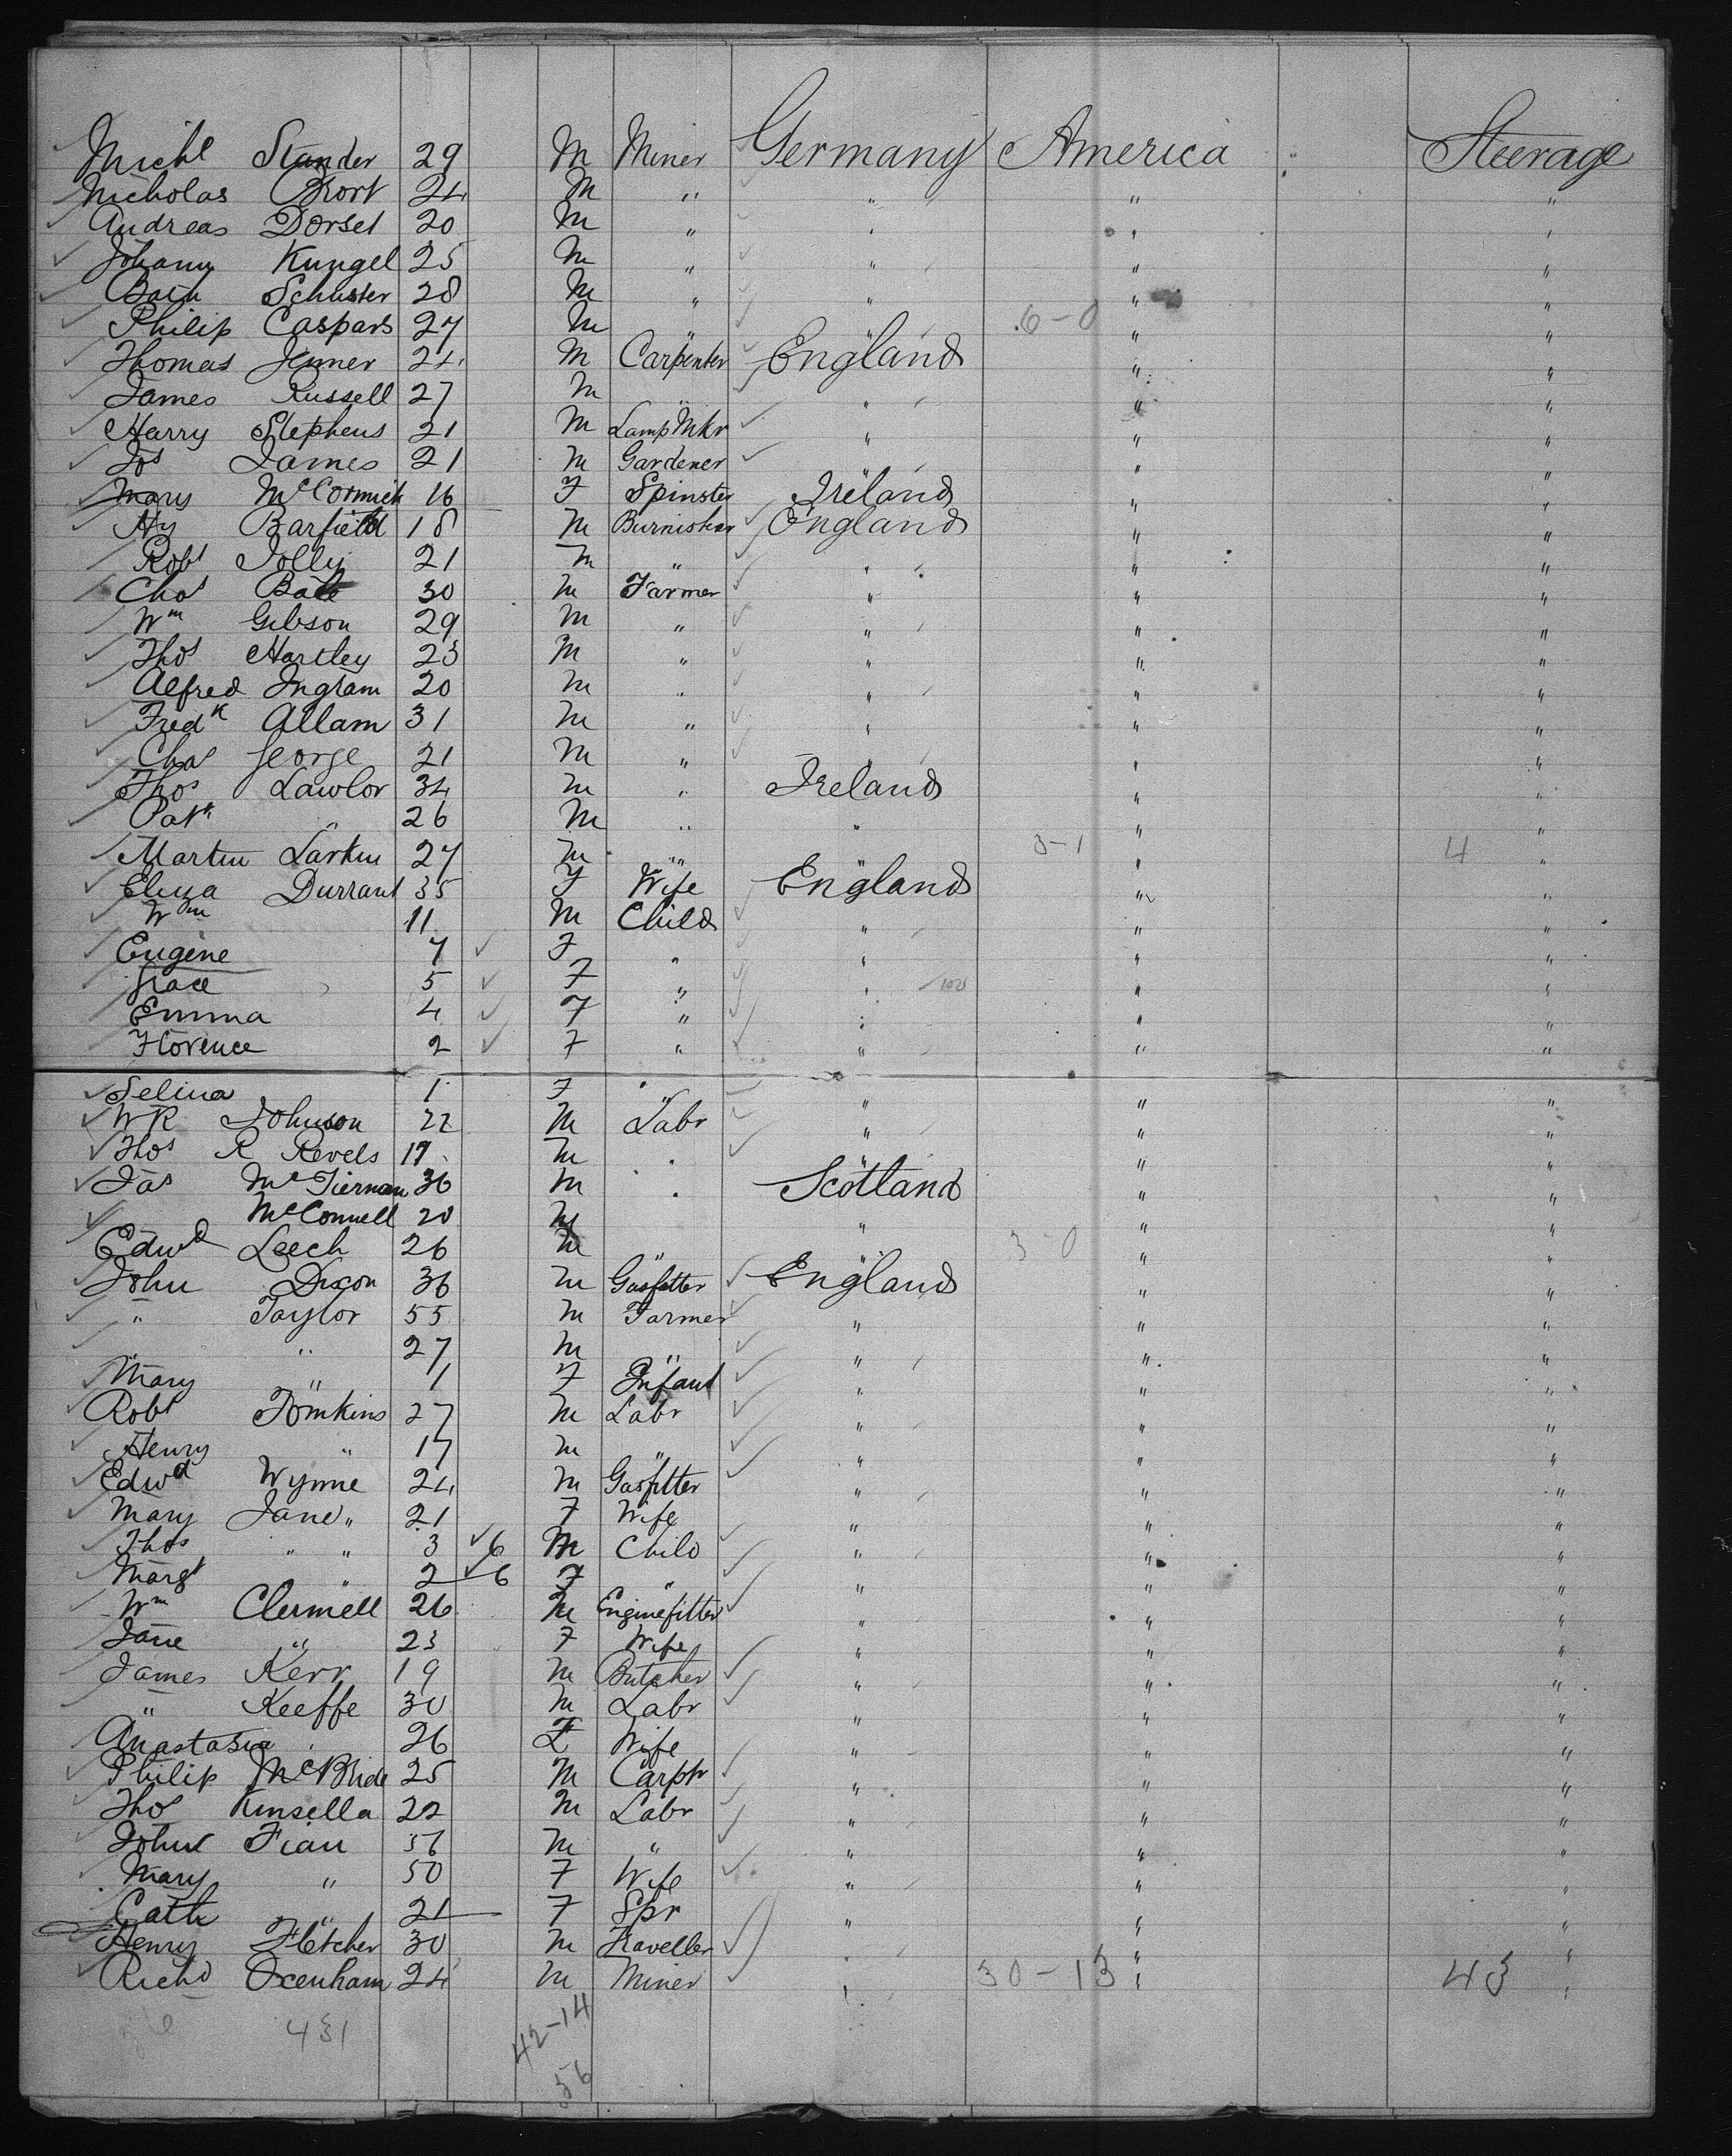 Michl Stander 29 M Miner Germany America Steerage
Nicholas Brort 24 M " " " "
Andreas Dorset 20 M " " " "
Johann Kungel 25 M " " " "
Schuster 28 M " " " "
Philip Caspars 27 M " " 6-0 " "
Thomas Jenner 24 M Carpenter England " "
James Russell 27 M " " " "
Harry Stephens 21 M Lamp Mkr " " "
Jos James 21 M Gardener " " "
Mary McCormick 16 F Spinster Ireland " "
Hy Barfield 18 M Burnisher England " "
Robt Jolly 21 M " " " "
Chas Bate 30 M Farmer " " "
Wm Gibson 29 M " " " "
Thos Hartley 23 M " " " "
Alfred Ingram 20 M " " " "
Fredk Allam 31 M " " " "
Chas George 21 M " " " "
Thos Lawlor 34 M " Ireland " "
Patk " 26 M " " " "
Martin Larkin 27 M " " 3-1 " 4 "
Eliza Durrant 35 F Wife England " "
Wm 11 M Child " " "
Eugene 7 F " " " "
Grace 5 F " " " "
Emma 4 F " " " "
Florence 2 F " " " "
Selina 1 F " " " "
WR Johnson 22 M Labr " " "
Thos R Revels 17 M " " " "
Jas McTiernan 36 M " Scotland " "
McConnell 20 M " " "
Edwd Leech 26 M " " 3-0 " "
John Dixon 36 M Gasfitter England " "
" Taylor 55 M Farmer " " "
" 27 M " " " "
Mary " 1 F Infant " " "
Robt Tomkins 27 M Labr " " "
Henry " 17 M " " " "
Edwd Wynne 24 M Gasfitter " " "
Mary Jane " 21 F Wife " " "
Thos " " 3 6 M Child " " "
Margt " " 2 6 F " " " "
Wm Clermell 26 M Enginefitter " " "
Jane " 23 F Wife " " "
James Kerr 19 M Butcher " " "
" Keeffe 30 M Labr " " "
Anastasia 26 F Wife " " "
Philip McBride 25 M Carptr " " "
Thos Kinsella 22 M Labr " " "
John Fian 56 M " " " "
Mary " 50 F Wife " " "
Cath " 21 F Spr " " "
Henry Fletcher 30 M Traveller " " "
Richd Oxenham 24 M Miner " 30-13 " 43 "
431 42-14
56